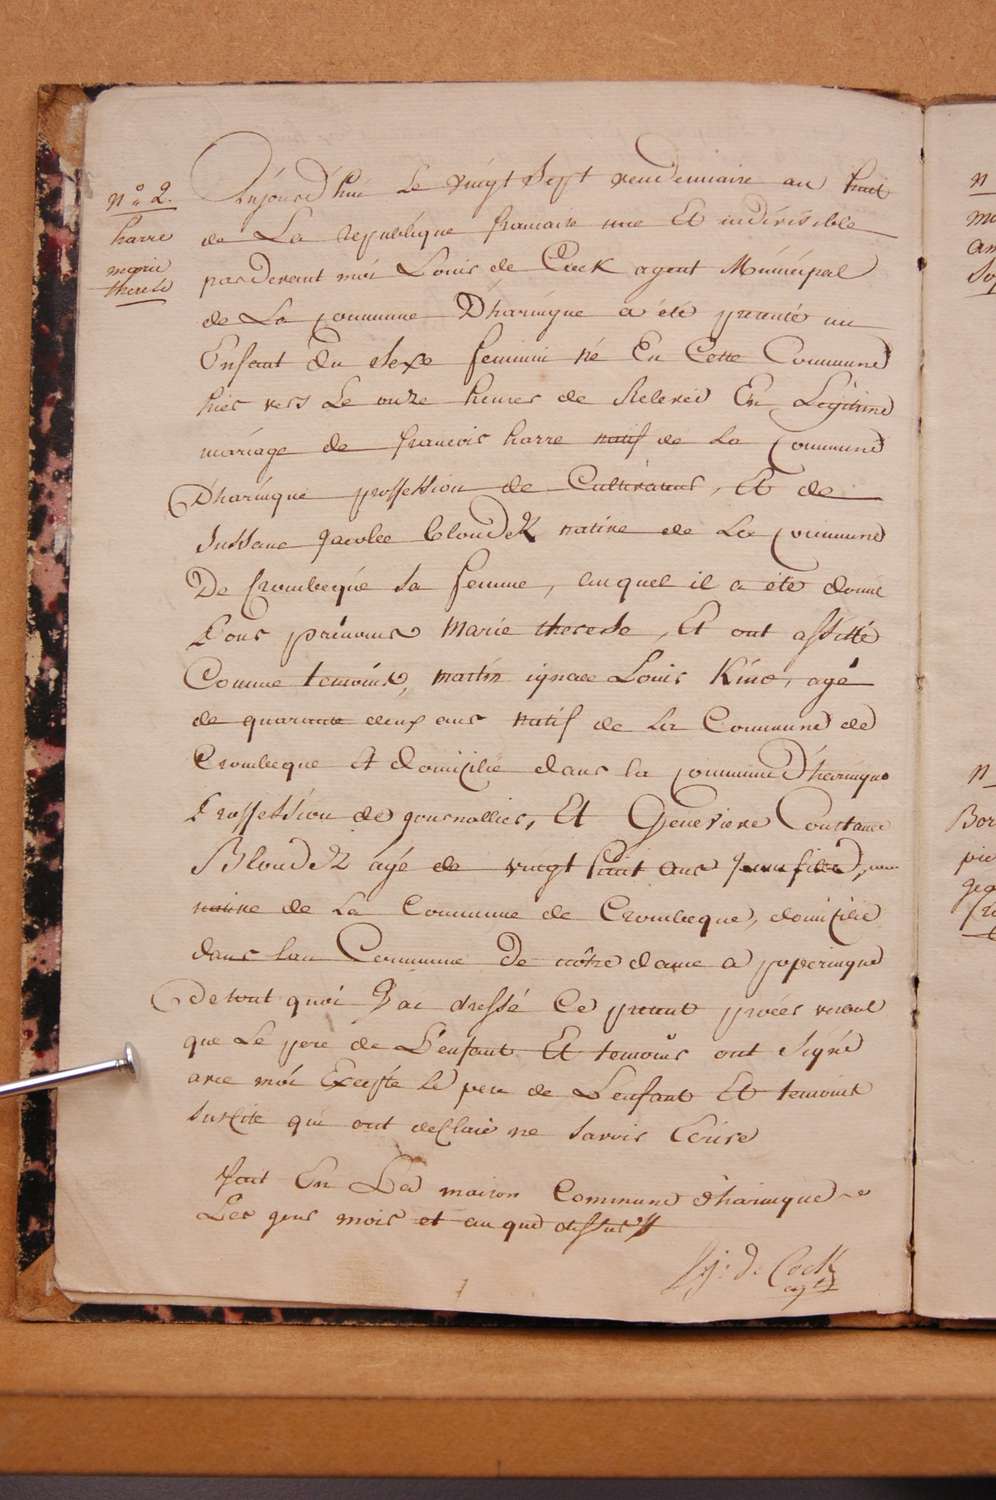 n° 2.
harre
marie
therese
Aujourd'hui Le vingt Sept vendemiaire an huit
de La republique francaise une Et indivisible
pardevant moi Louis de Cock agent Municipal
de La Commune D'haringue a été presenté un
Enfant du Sexe feminin né En Cette Commune
hier vers Le onze heures de Relevée En Légitime
mariage de francois harre natif de La Commune
D'haringue proffession de Cultivateur, Et de
Sussane Jacobee Bloudek native de La Commune
De Crombeque Sa femme, auquel il a été donné
Pour prénoms Marie therese, Et ont assisté
Comme temoins, martin ignace Louis Kino, agé
de quarante deux ans natif de La Commune de
Crombeque Et domicilié dans La Commune D'haringue
Proffession de journallier, Et Genevieve Constance
Bloudek agé de vingt huit ans jeune fille,
native de La Commune de Crombeque, domicilié
dans La Commune De nôtre dame a poperingue
De tout quoi J'ai dressé Ce present procès verbal
que Le pere de L'enfant Et temoins ont Signé
avec moi Excepte Le pere de L'enfant Et temoins
Suscité qui ont declaré ne Savoir Ecrire
fait En La maison Commune d'haringue
Les jour mois et an que dessus
J: d. Cock
agt
n
ma
n
Bor
pie